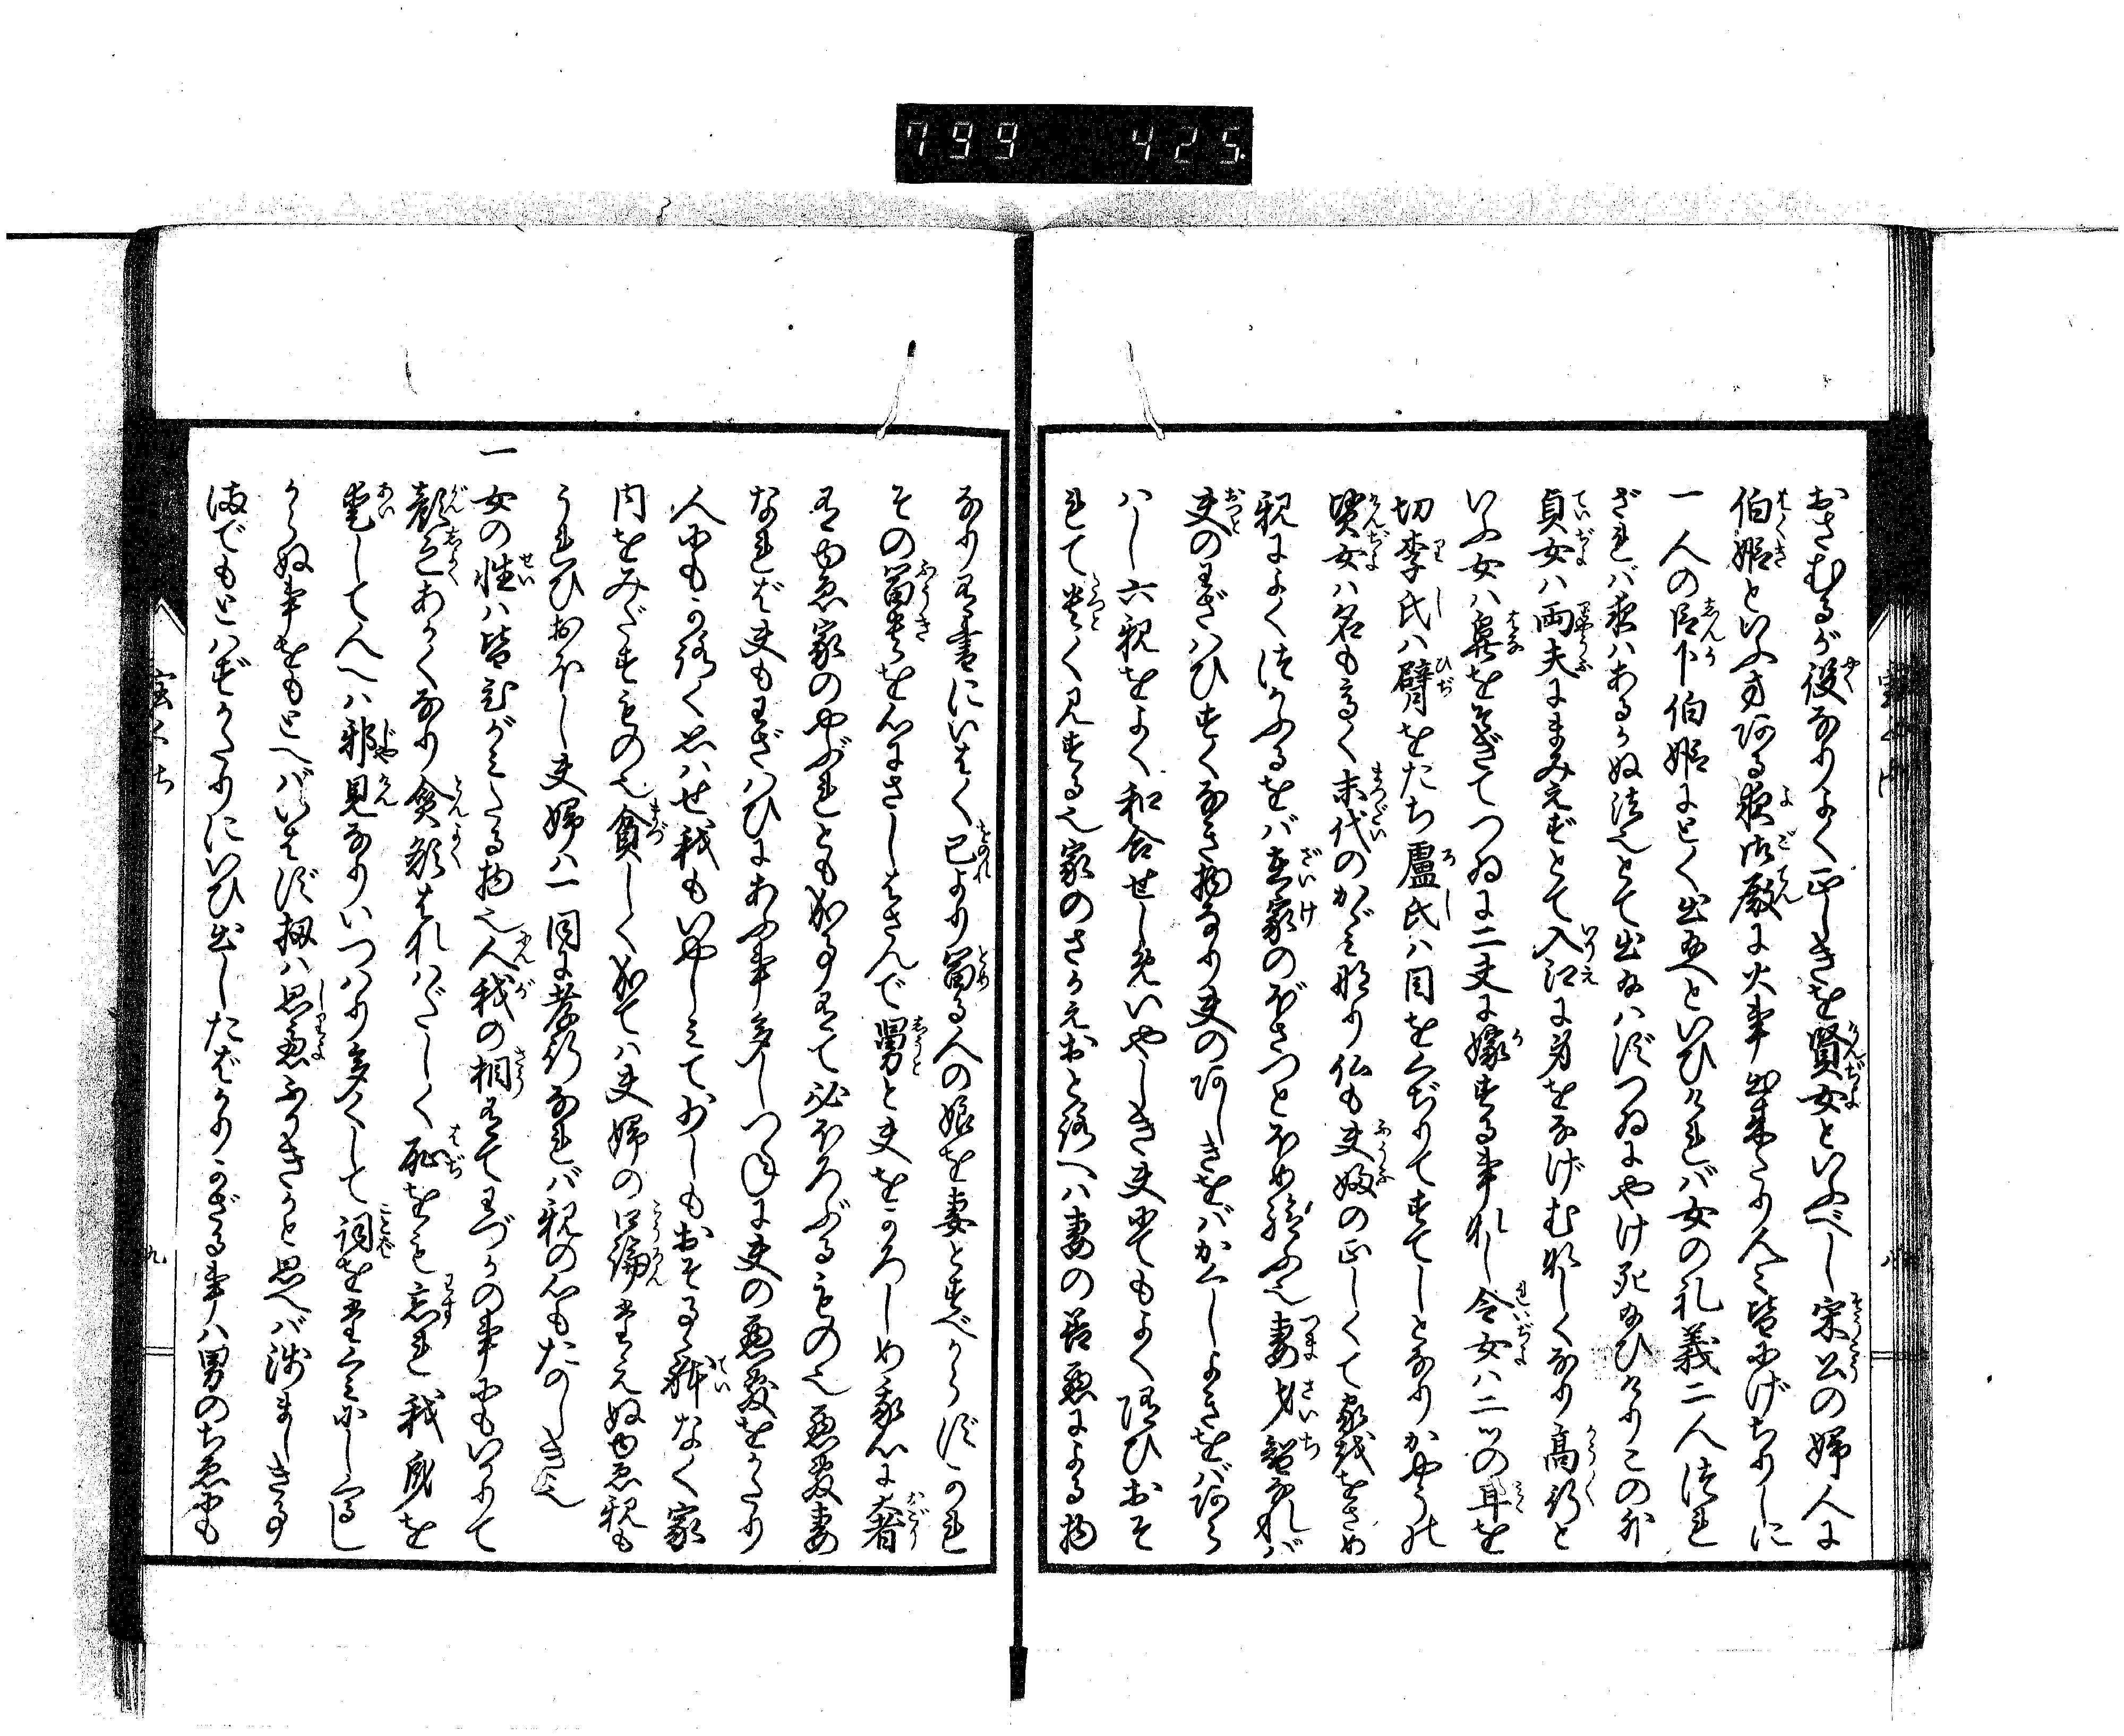 799 425
おさむるが役なりよく正しきを賢女といふべし宋公の婦人に
伯姫といふ方ある夜御殿に火事出来たり人々皆にげちりしに
一人の臣下伯姫にとく出玉へといひければ女の礼義二人つれ
ざれバ夜ハあるかぬ法也とて出玉ハずつゐにやけ死玉ひけりこの外
貞女ハ両夫にまみえずとて入江に身をなげむなしくなり高行と
いふ女ハ鼻をそぎてつゐに二夫に嫁する事なし令女ハ二ツの耳を
切李氏ハ臂をたち盧氏ハ目をくじりてすてしとなりかやうの
賢女ハ名も高く末代のかゞみ也仏も夫婦の正しくて家をおさめ
親によくつかふるをバ在家のぼさつとほめ給ふ也妻才智なれバ
夫のわざハひすくなき物なり夫のあしきをバかくしよきをバあら
ハし六親をよく和合せしめいやしき夫にてもよく随ひおそ
れて貴く見する也家のさかえおとろへハ妻の善悪による物
なり書にいはく己より富る人の娘を妻とすべからずかれ
その富貴を心にさしはさんで舅と夫をかろしめ我心に奢
有ゆゑ家のやぶれとも成事有て必ほろぶるもの也悪妻
なれば夫もわざハひにあふ事多しつねに夫の悪をかたり
人にもかろく思ハせ我もいやしみて少しもおそるゝ躰なく家
内をみだすもの也貧しく成てハ夫婦の口論たえぬゆゑ親も
うれひおほし夫婦ハ一同に孝行なれバ親の心もたのしき也
一女の性ハ皆ひがみたる物也人我の相有てわづかの事にもいかりて
顔色あかくなり貪欲はなハだしく恥をも忘れ我身を
愛して人へハ邪見なりいつハり多くして詞をたくみにし
からぬ事をもとへバいはず扨ハ思慮ふかきかと思へバ浅ましき事
迄でもとハずかたりにいひ出したばかりかざる事ハ男のちゑにも
八
九